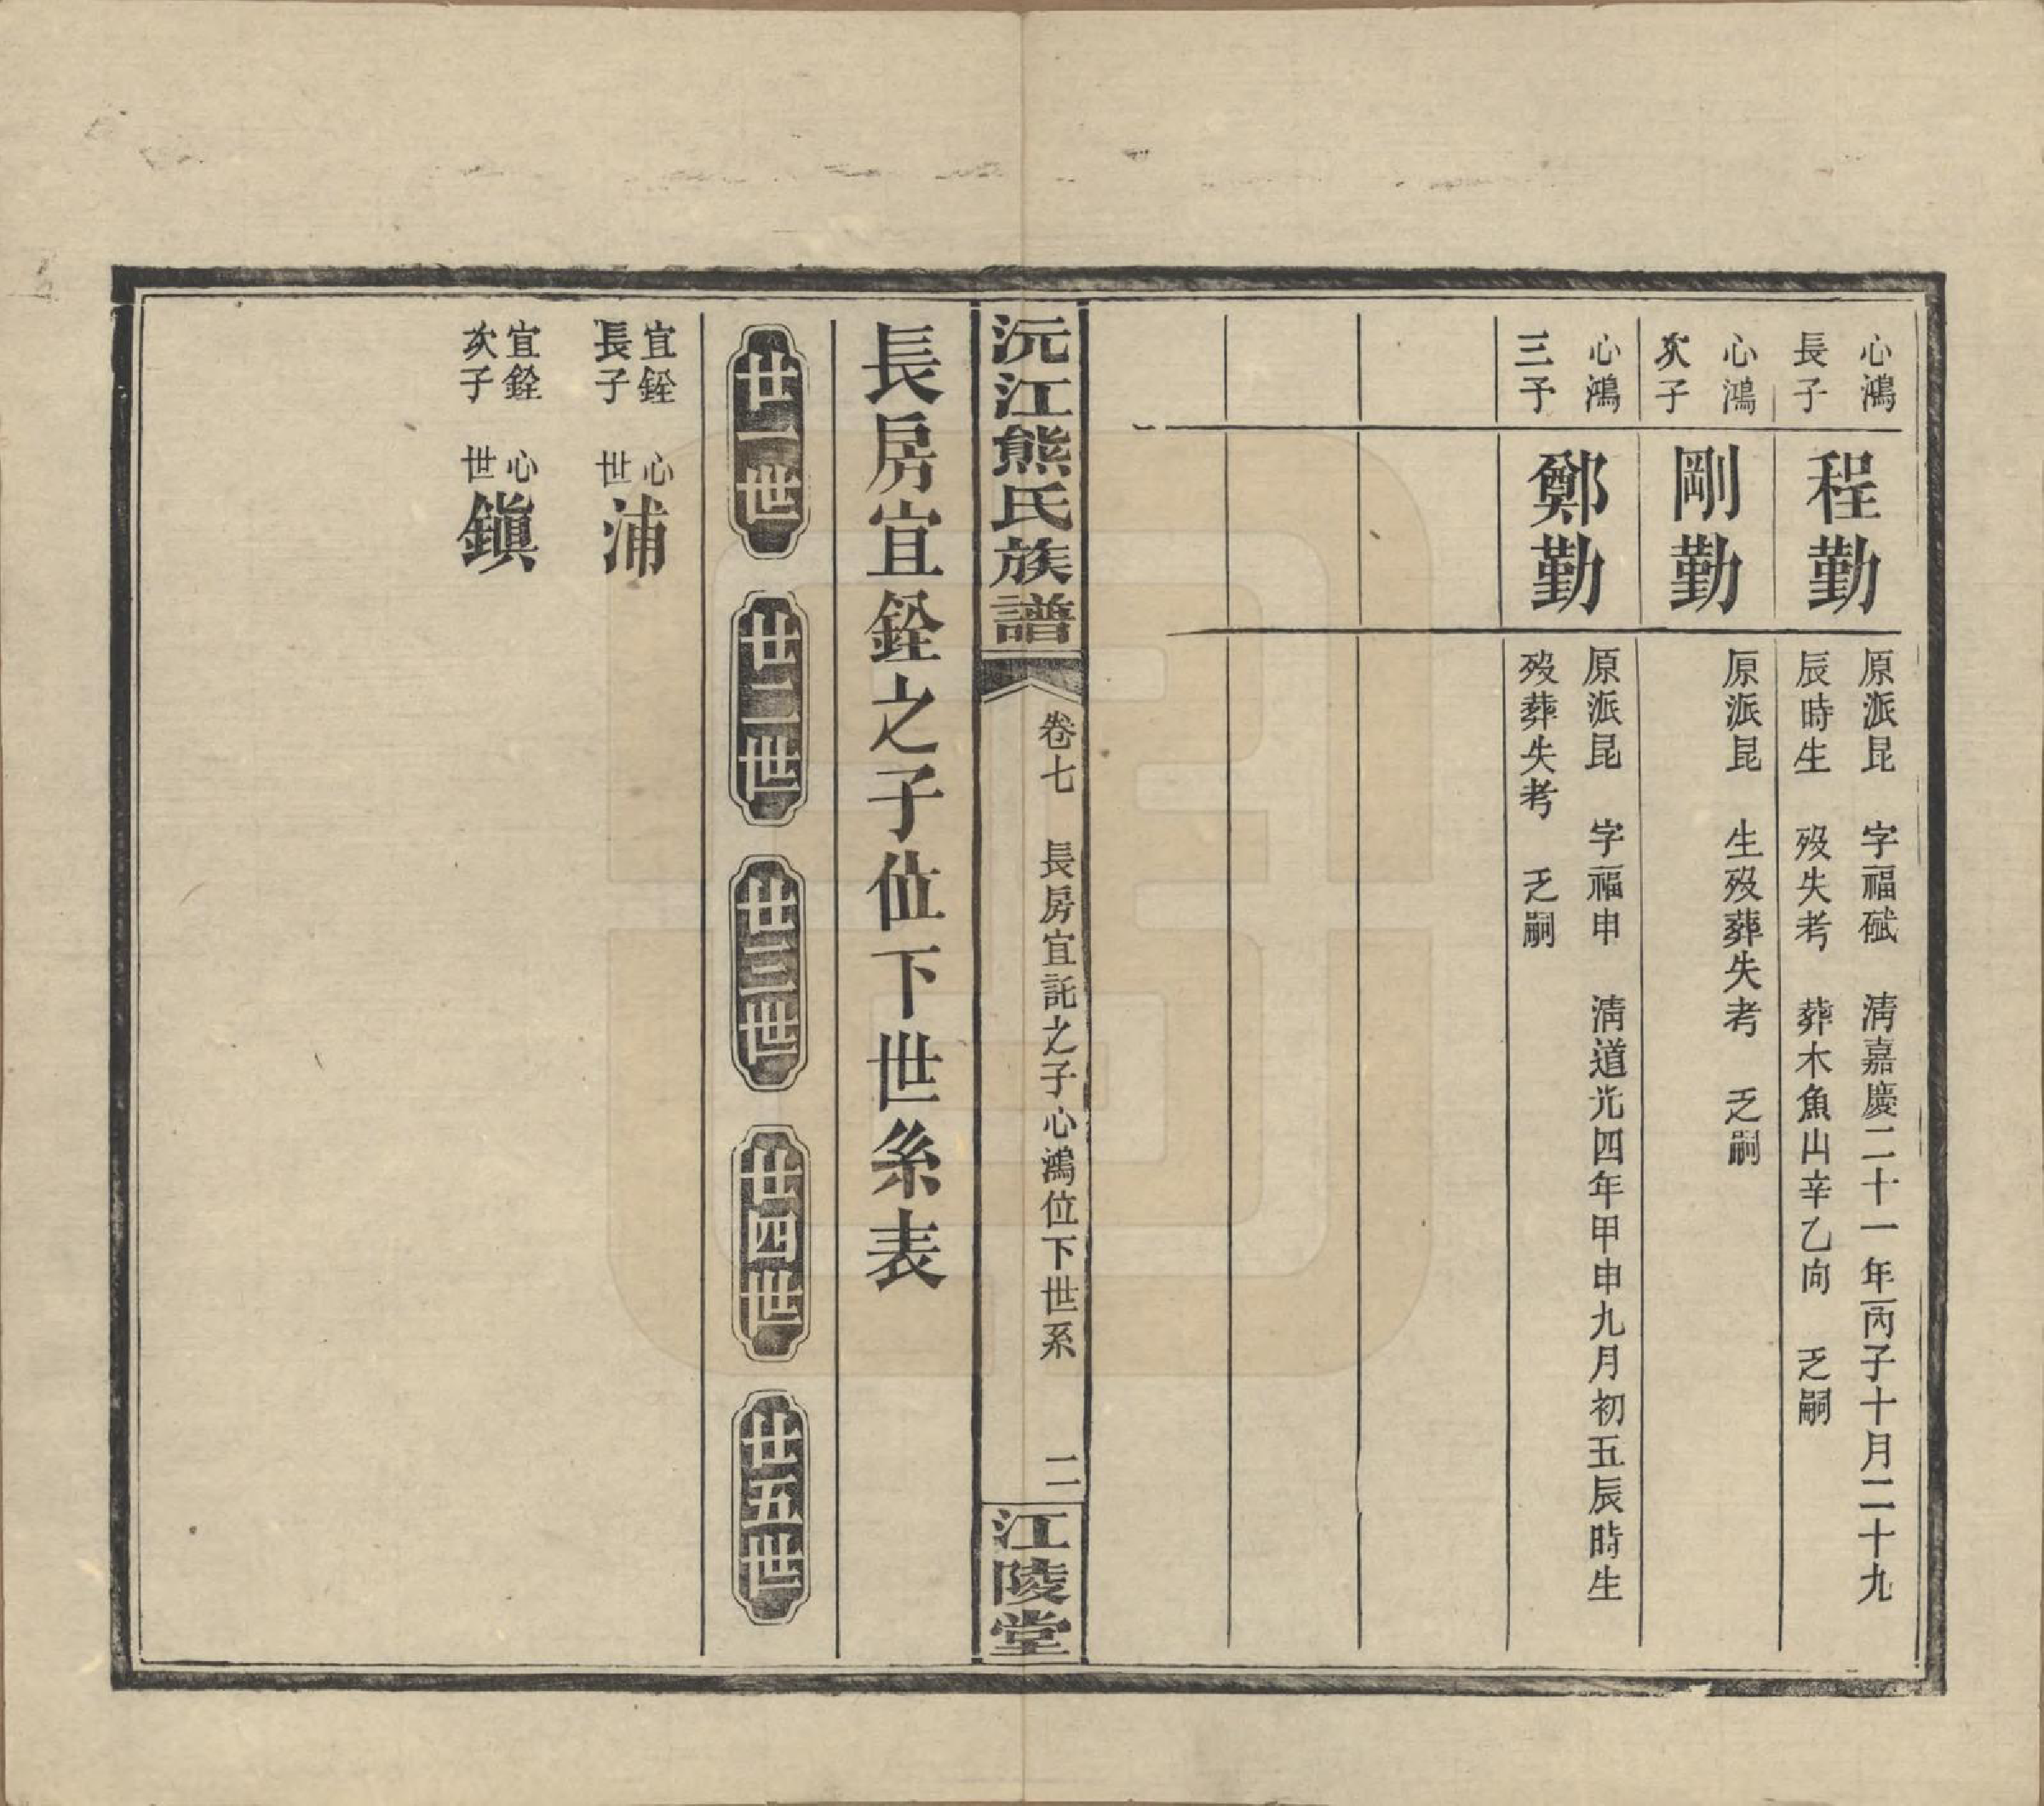 心鴻
長子
程勤
原派昆　字福碔　清嘉慶二十一年丙子十月二十九
辰時生　歿失考　葬木魚山辛乙向　乏嗣
心鴻
次子
剛勤
原派昆　生歿葬失考　乏嗣
心鴻
三子
鄭勤
原派昆　字福申　清道光四年甲申九月初五辰時生
歿葬失考　乏嗣
沅江熊氏族譜
卷七　長房宜託之子心鴻位下世系　二
江陵堂
長房宜銓之子位下世系表
廿一世
廿二世
廿三世
廿四世
廿五世
宜銓
長子
心世浦
宜銓
次子
心世鎮